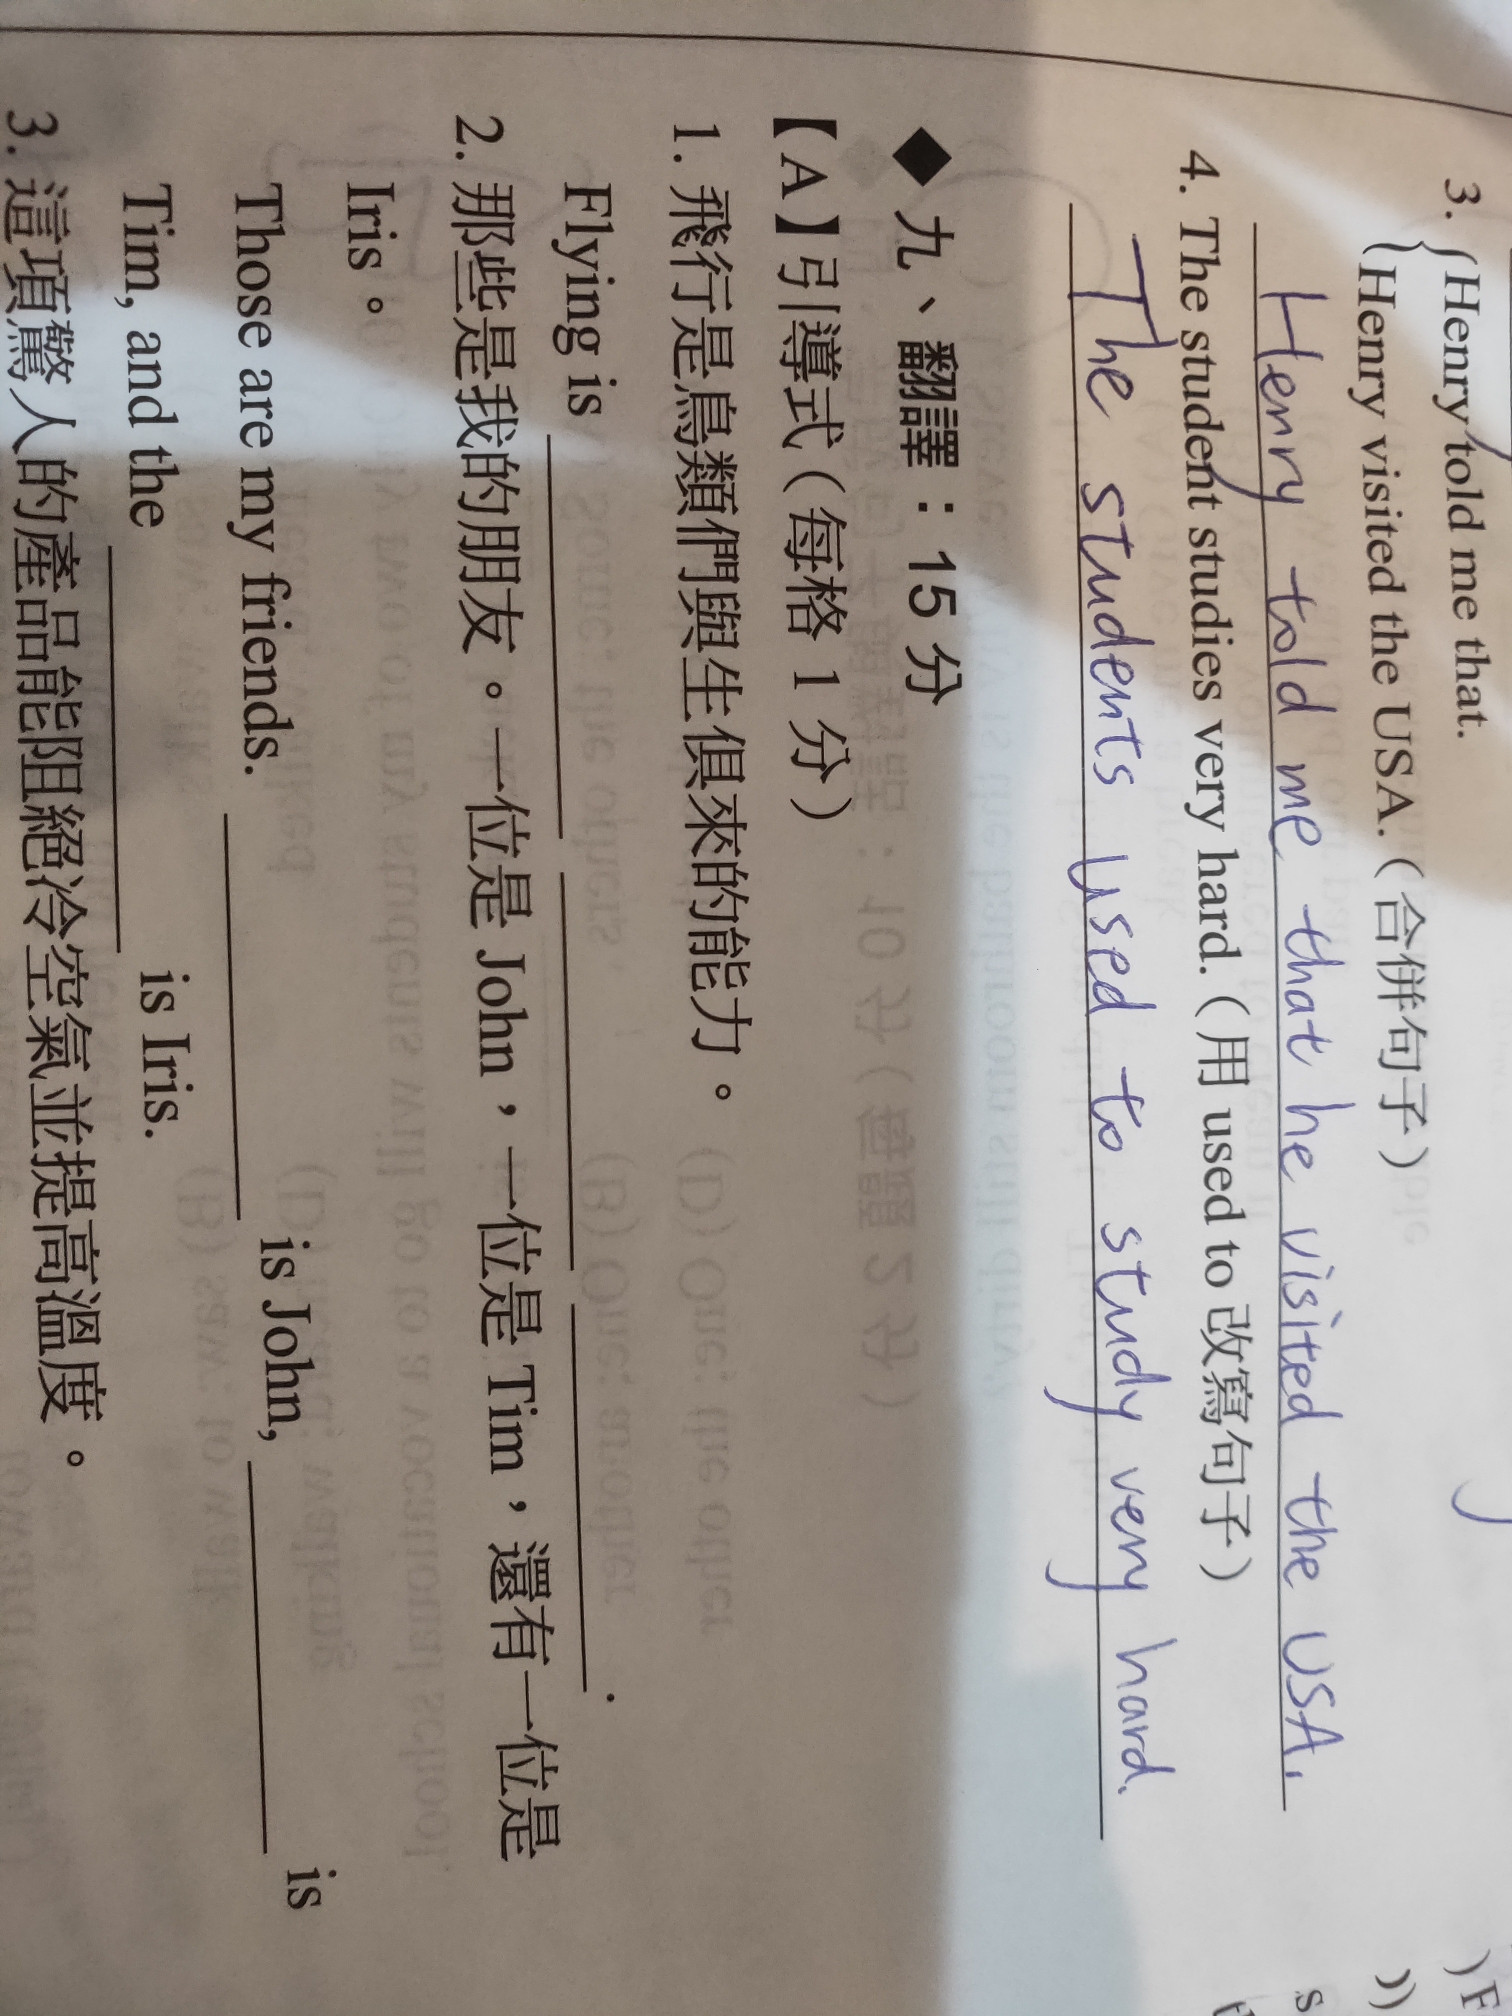 3. { Henry told me that.
Henry visited the USA.（合併句子）
Henry told me that he visited the USA.
4. The student studies very hard.（用 used to 改寫句子）
The students used to study very hard.
◆ 九、翻譯：15 分
【A】引導式（每格 1 分）
1. 飛行是鳥類們與生俱來的能力。
Flying is ________ ________ ________.
2. 那些是我的朋友。一位是 John，一位是 Tim，還有一位是
Iris。
Those are my friends. ________ is John, ________ is
Tim, and the ________ is Iris.
3. 這項驚人的產品能阻絕冷空氣並提高溫度。